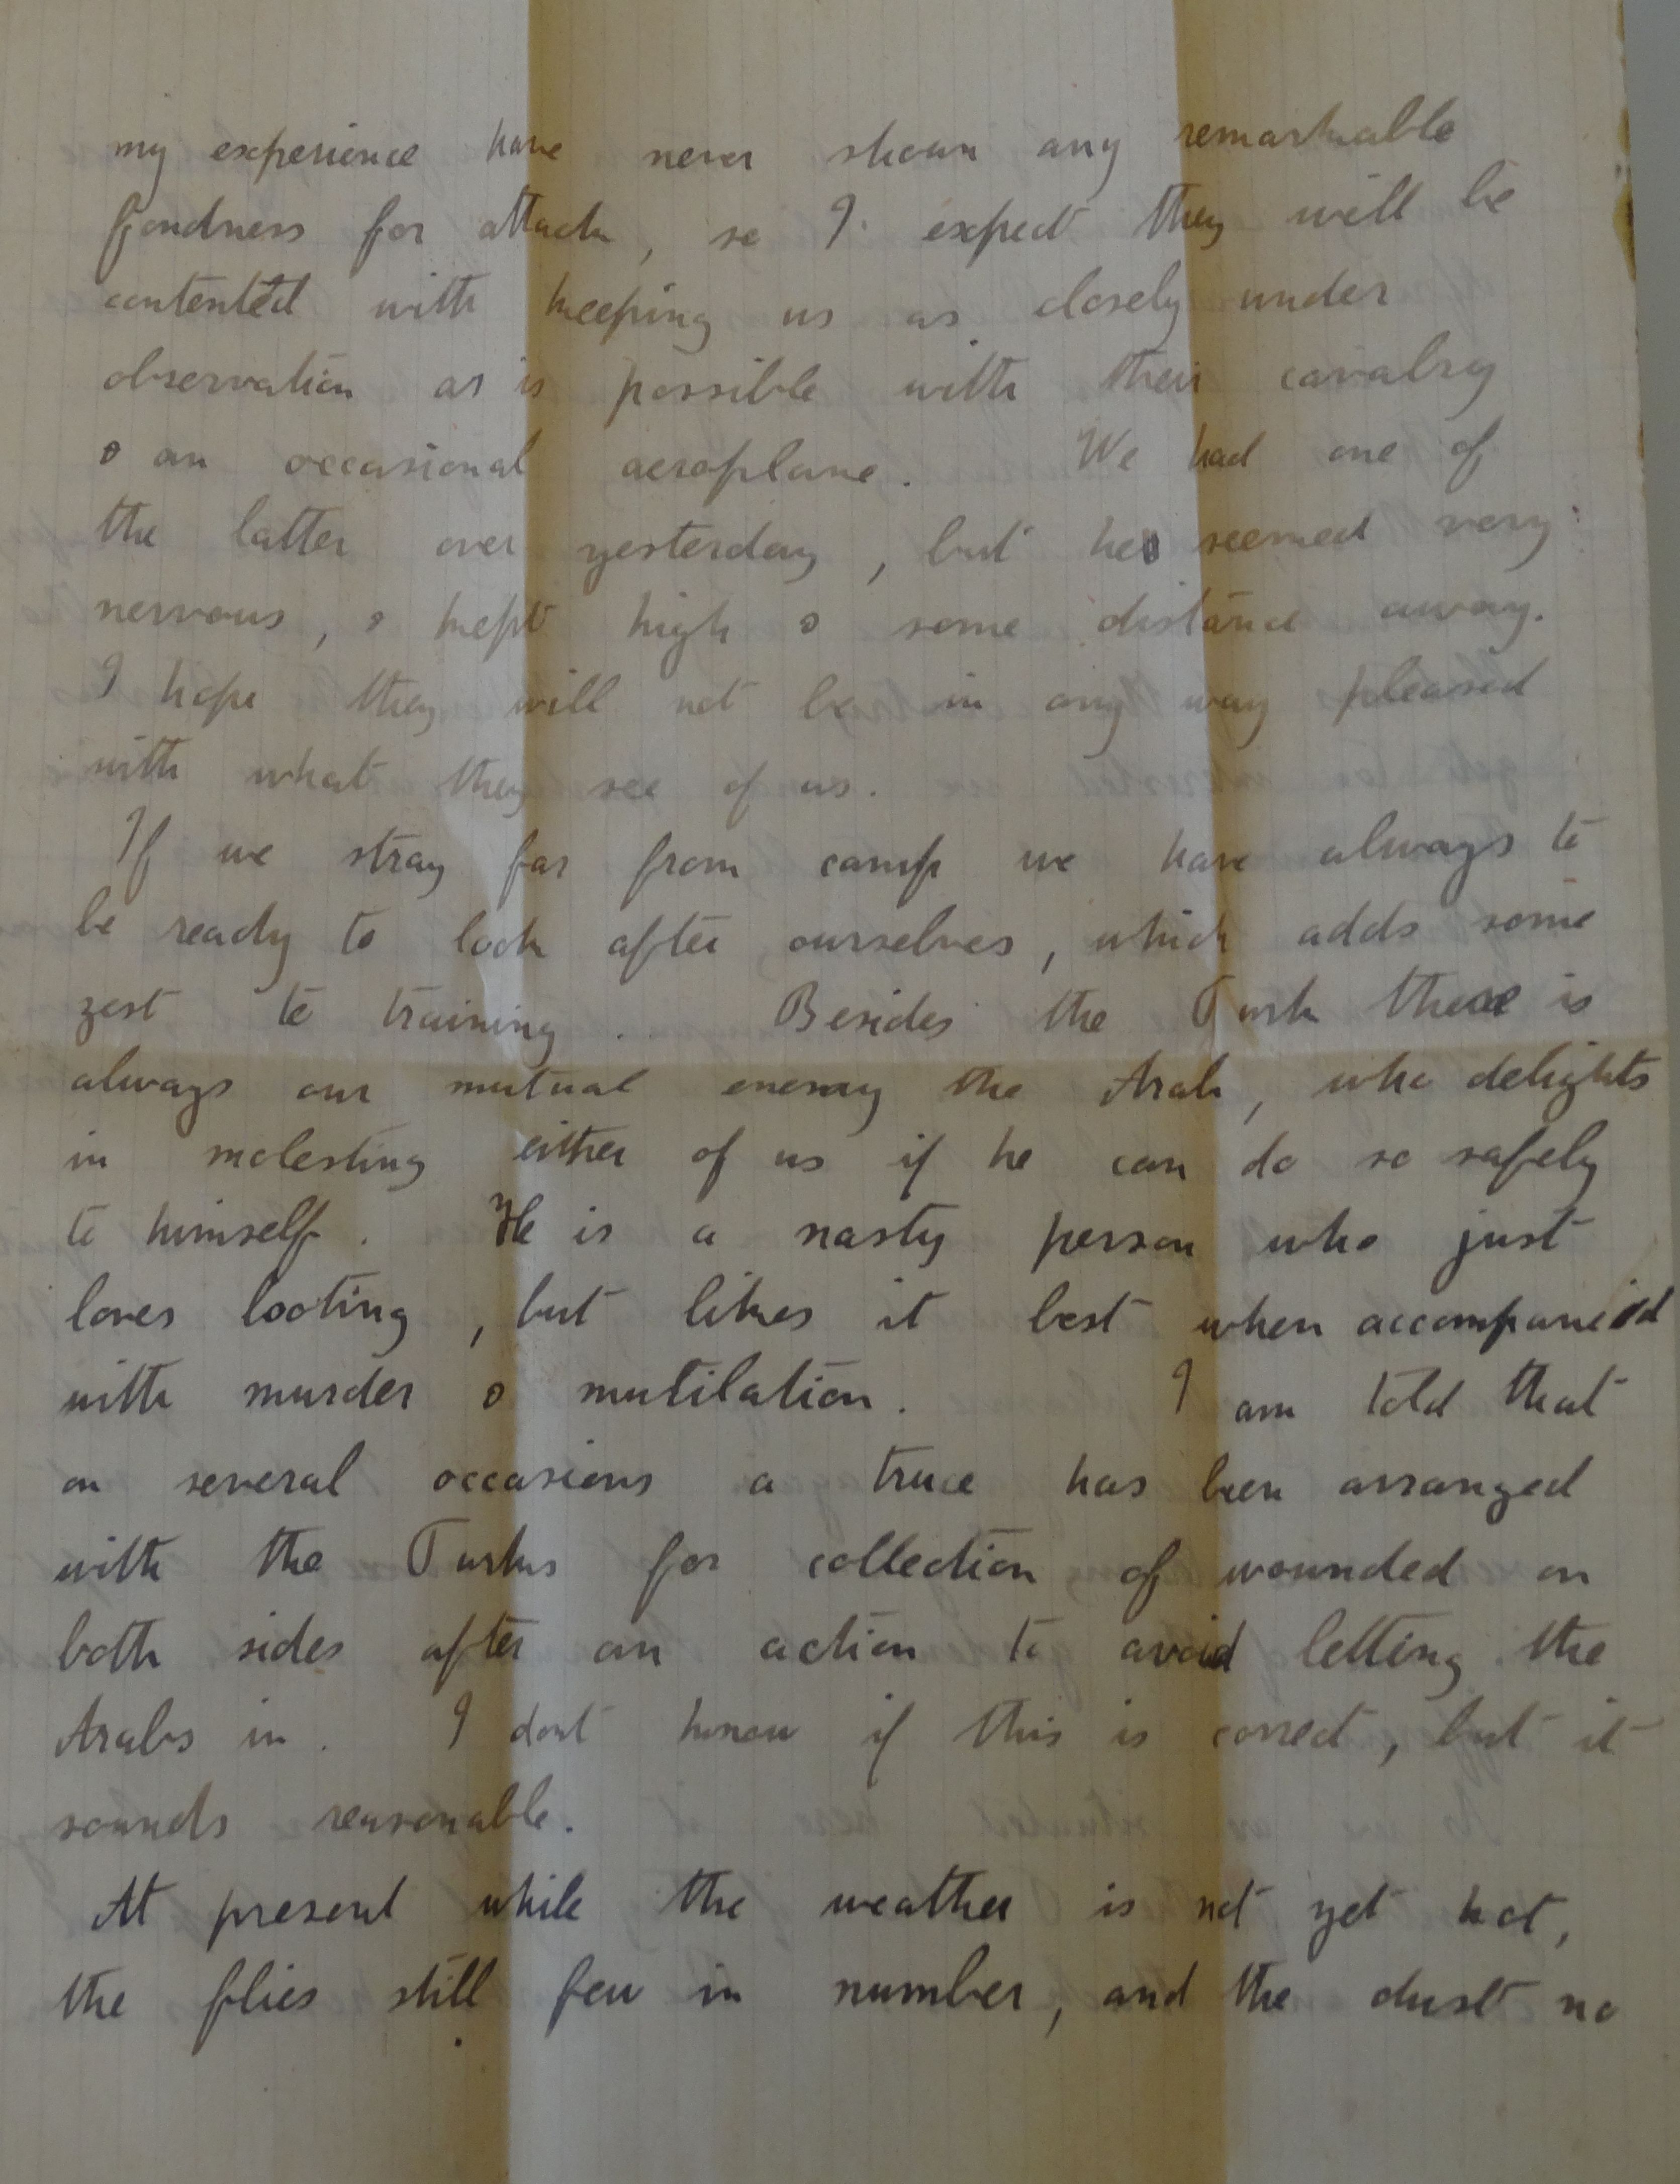 my experience have never shown any remarkable
fondness for attack, so I expect they will be
contented with keeping us as closely under
observation as is possible with their cavalry
& an occasional aeroplane. We had one of
the latter over yesterday, but he seemed very
nervous, & kept high & some distance away.
I hope they will not be in any way pleased
with what they see of us.
If we stray far from camp we have always to
be ready to look after ourselves, which adds some
zest to training. Besides the Turk there is
always our mutual enemy the Arab, who delights
in molesting either of us if he can do so safely
to himself. He is a nasty person who just
loves looting, but likes it best when accompanied
with murder & mutilation. I am told that
on several occasions a truce has been arranged
with the Turks for collection of wounded on
both sides after an action to avoid letting the
Arabs in. I dont know if this is correct, but it
sounds reasonable.
At present while the weather is not yet hot,
the flies still few in number, and the dust no